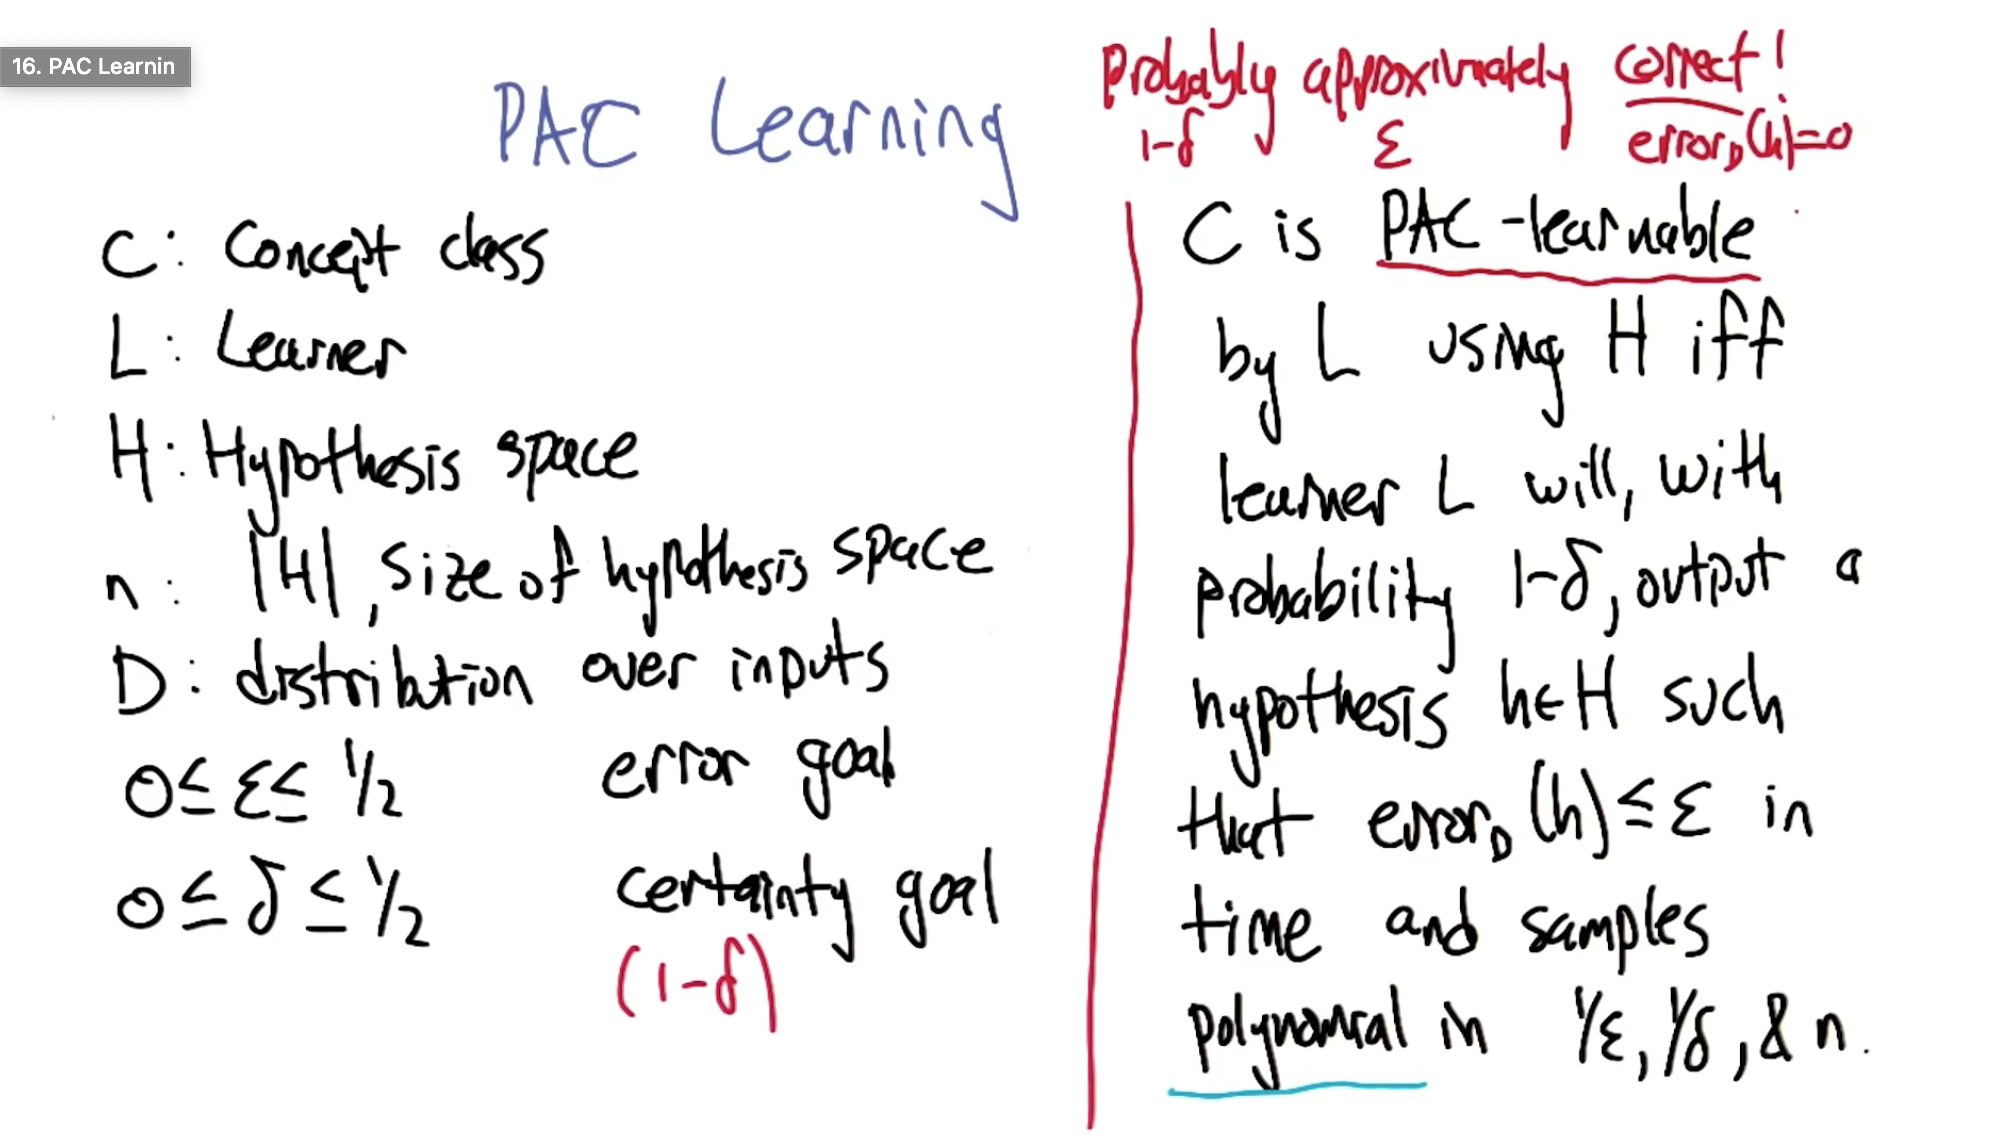 16. PAC Learnin
PAC Learning
C: Concept class
L: Learner
H: Hypothesis space
n: |H|, size of hypothesis space
D: distribution over inputs
0≤ε≤ 1/2 error goal
0≤δ≤1/2 certainty goal
(1-δ)
Probably approximately correct!
1-δ ε error_D(h)=0
C is PAC-learnable
by L using H iff
learner L will, with
probability 1-δ, output a
hypothesis h∈H such
that error_D(h)≤ε in
time and samples
polynomial in 1/ε, 1/δ, & n.